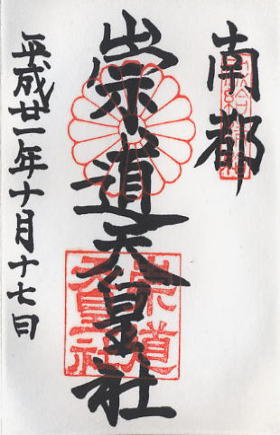 南都
崇道天皇社
平成廿一年十月十七日
崇道天皇社